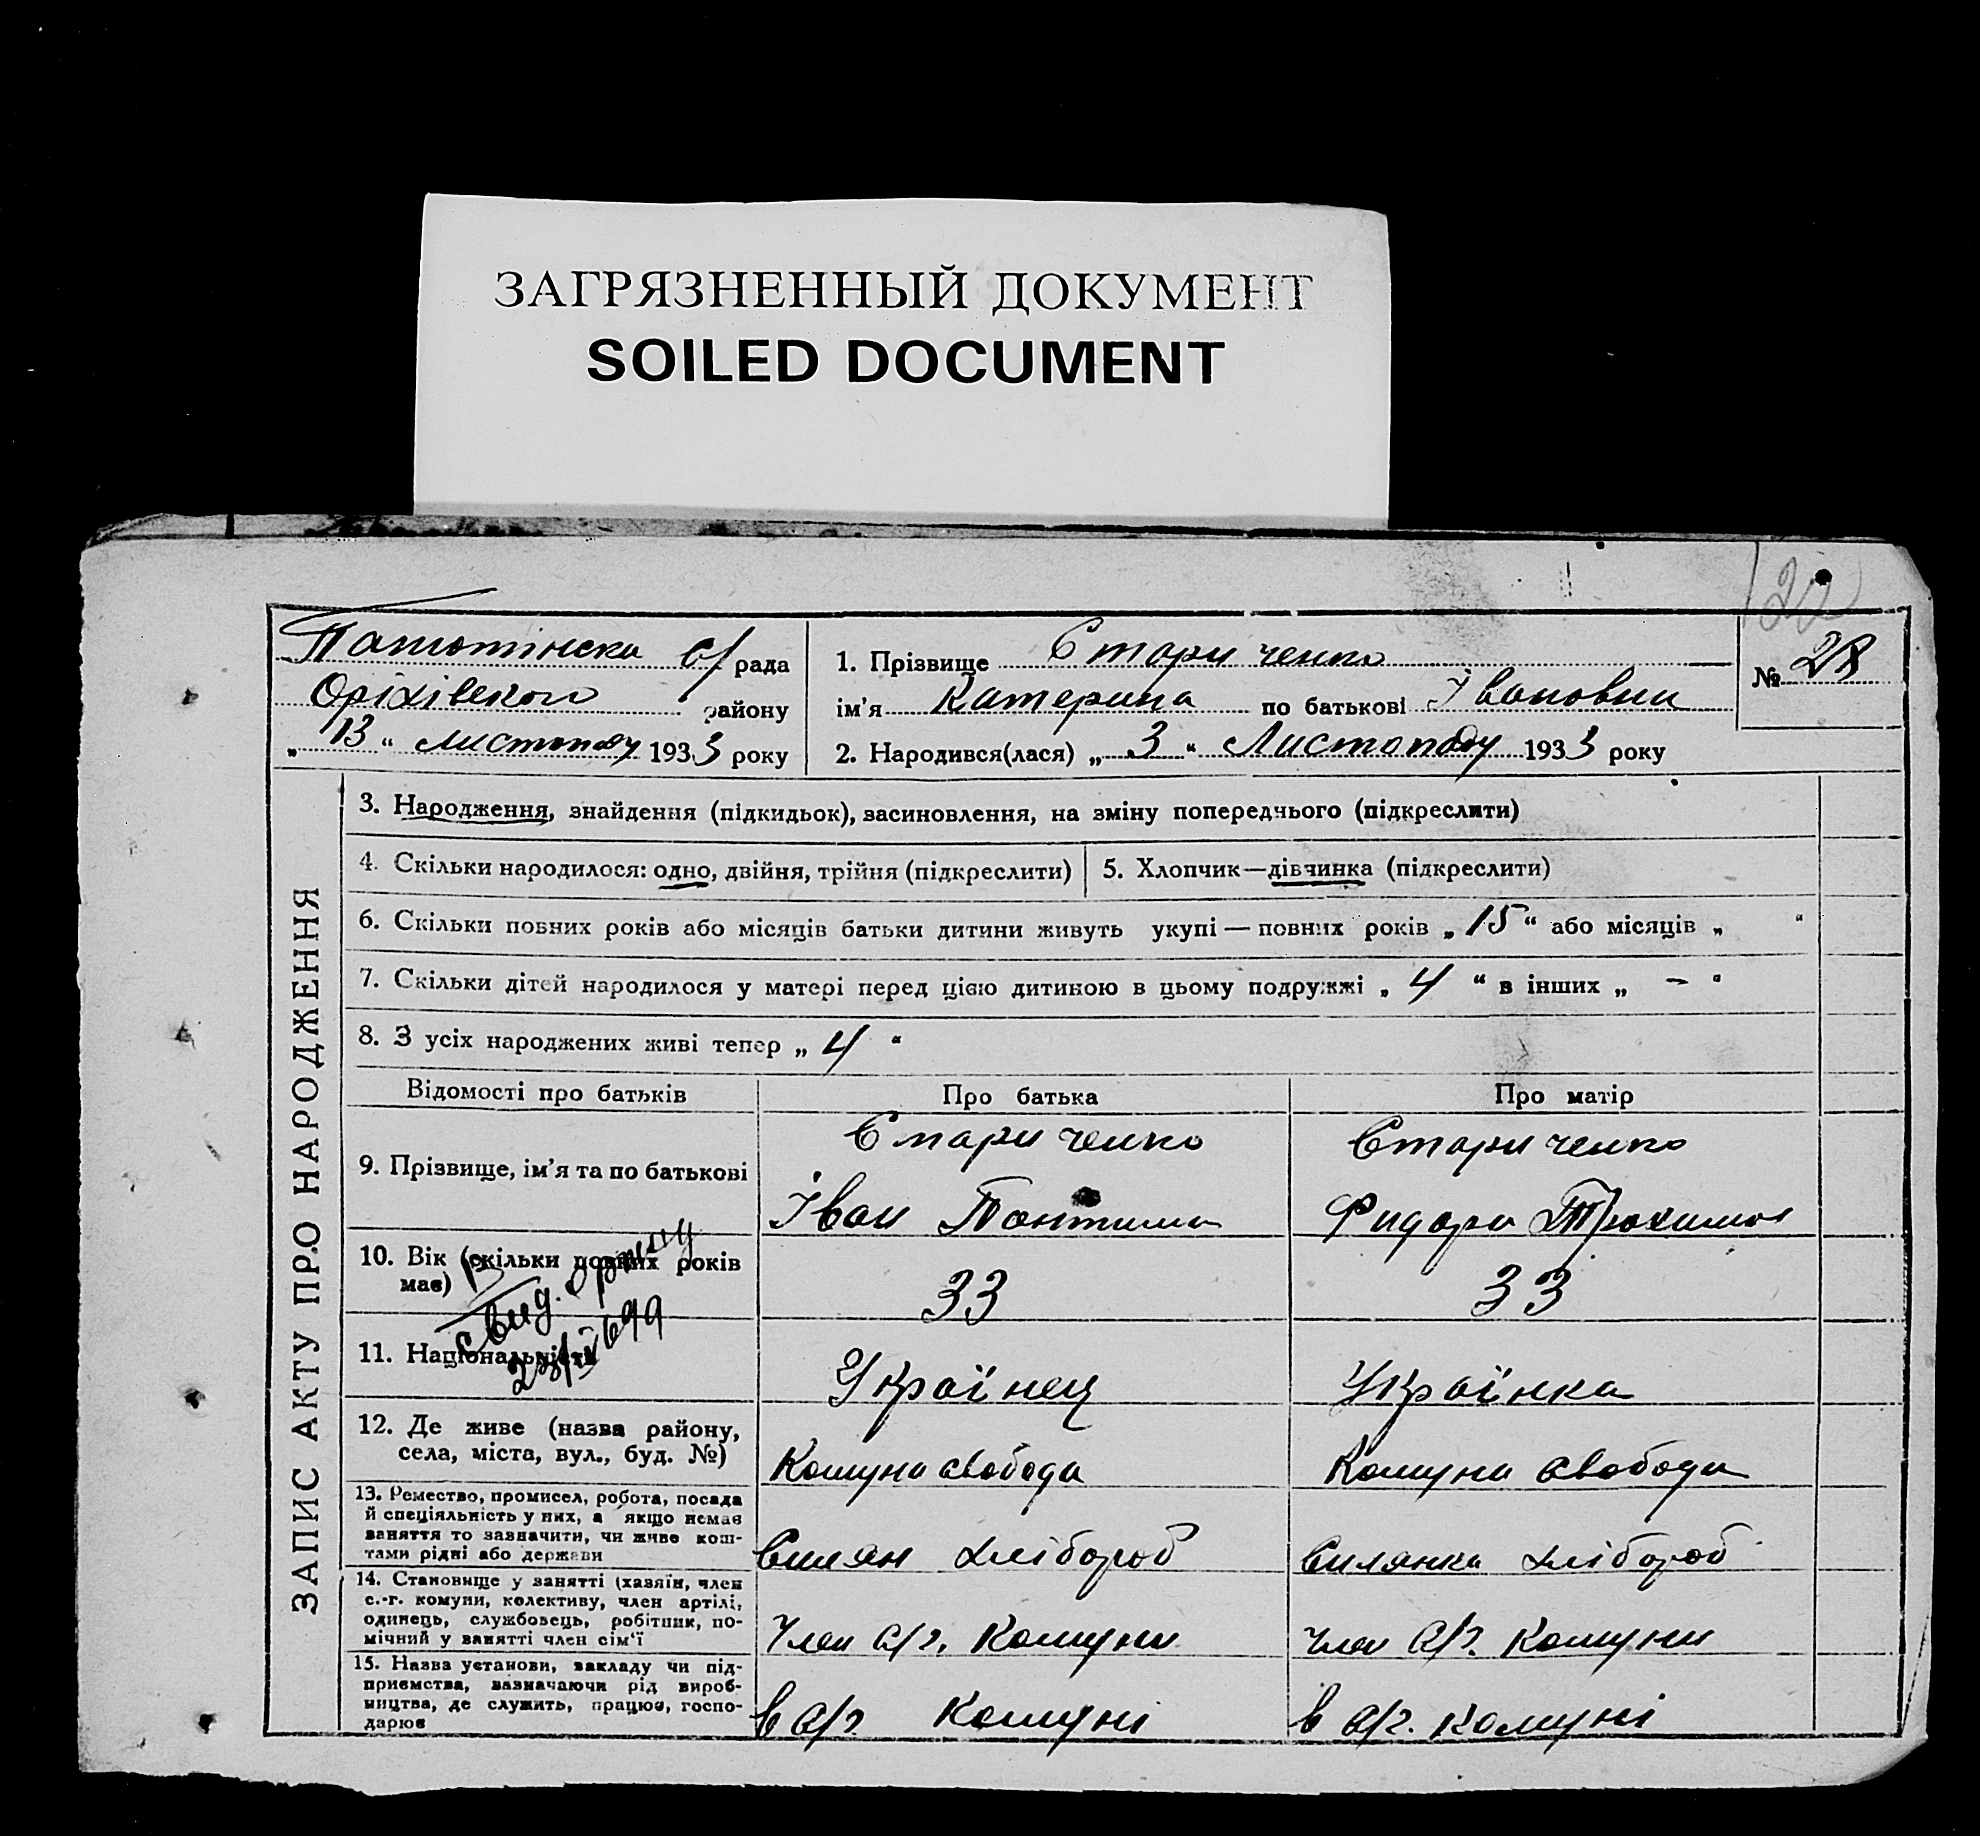 ЗАГРЯЗНЕННЫЙ ДОКУМЕНТ
SOILED DOCUMENT
с/рада
Оріхівского району
„13“ Листопаду 1933 року
1. Прізвище Стариченко
ім'я Катерина по батькові Івановни
№ 28
2. Народився(лася) „3“ Листопаду 1933 року
ЗАПИС АКТУ ПРО НАРОДЖЕННЯ
3. Народження, знайдення (підкидьок), засиновлення, на зміну попереднього (підкреслити)
4. Скільки народилося: одно, двійня, трійня (підкреслити)
5. Хлопчик—дівчинка (підкреслити)
6. Скільки повних років або місяців батьки дитини живуть укупі — повних років „15“ або місяців „ “
7. Скільки дітей народилося у матері перед цією дитиною в цьому подружжі „4“ в інших „ – “
8. З усіх народжених живі тепер „4“
Відомості про батьків
Про батька
Про матір
9. Прізвище, ім'я та по батькові
Стариченко
Іван
Стариченко
10. Вік (скільки повних років має)
33
33
11. Національність
Українец
Українка
12. Де живе (назва району,
села, міста, вул., буд. №)
Комуна свобода
Комуна свобода
13. Ремество, промисел, робота, посада
й спеціяльність у них, а якщо немає
заняття то зазначити, чи живе кош-
тами рідні або держави
Силян хлібороб
Силянка хлібороб
14. Становище у занятті (хазяїн, член
с.-г. комуни, колективу, член артілі,
одинець, службовець, робітник, по-
мічний у занятті член сім'ї
Член с/г. Комуни
член с/г. Комуни
15. Назва установи, закладу чи під-
приємства, зазначаючи рід вироб-
ництва, де служить, працює, госпо-
дарює
в с/г Комуні
в с/г. Комуні